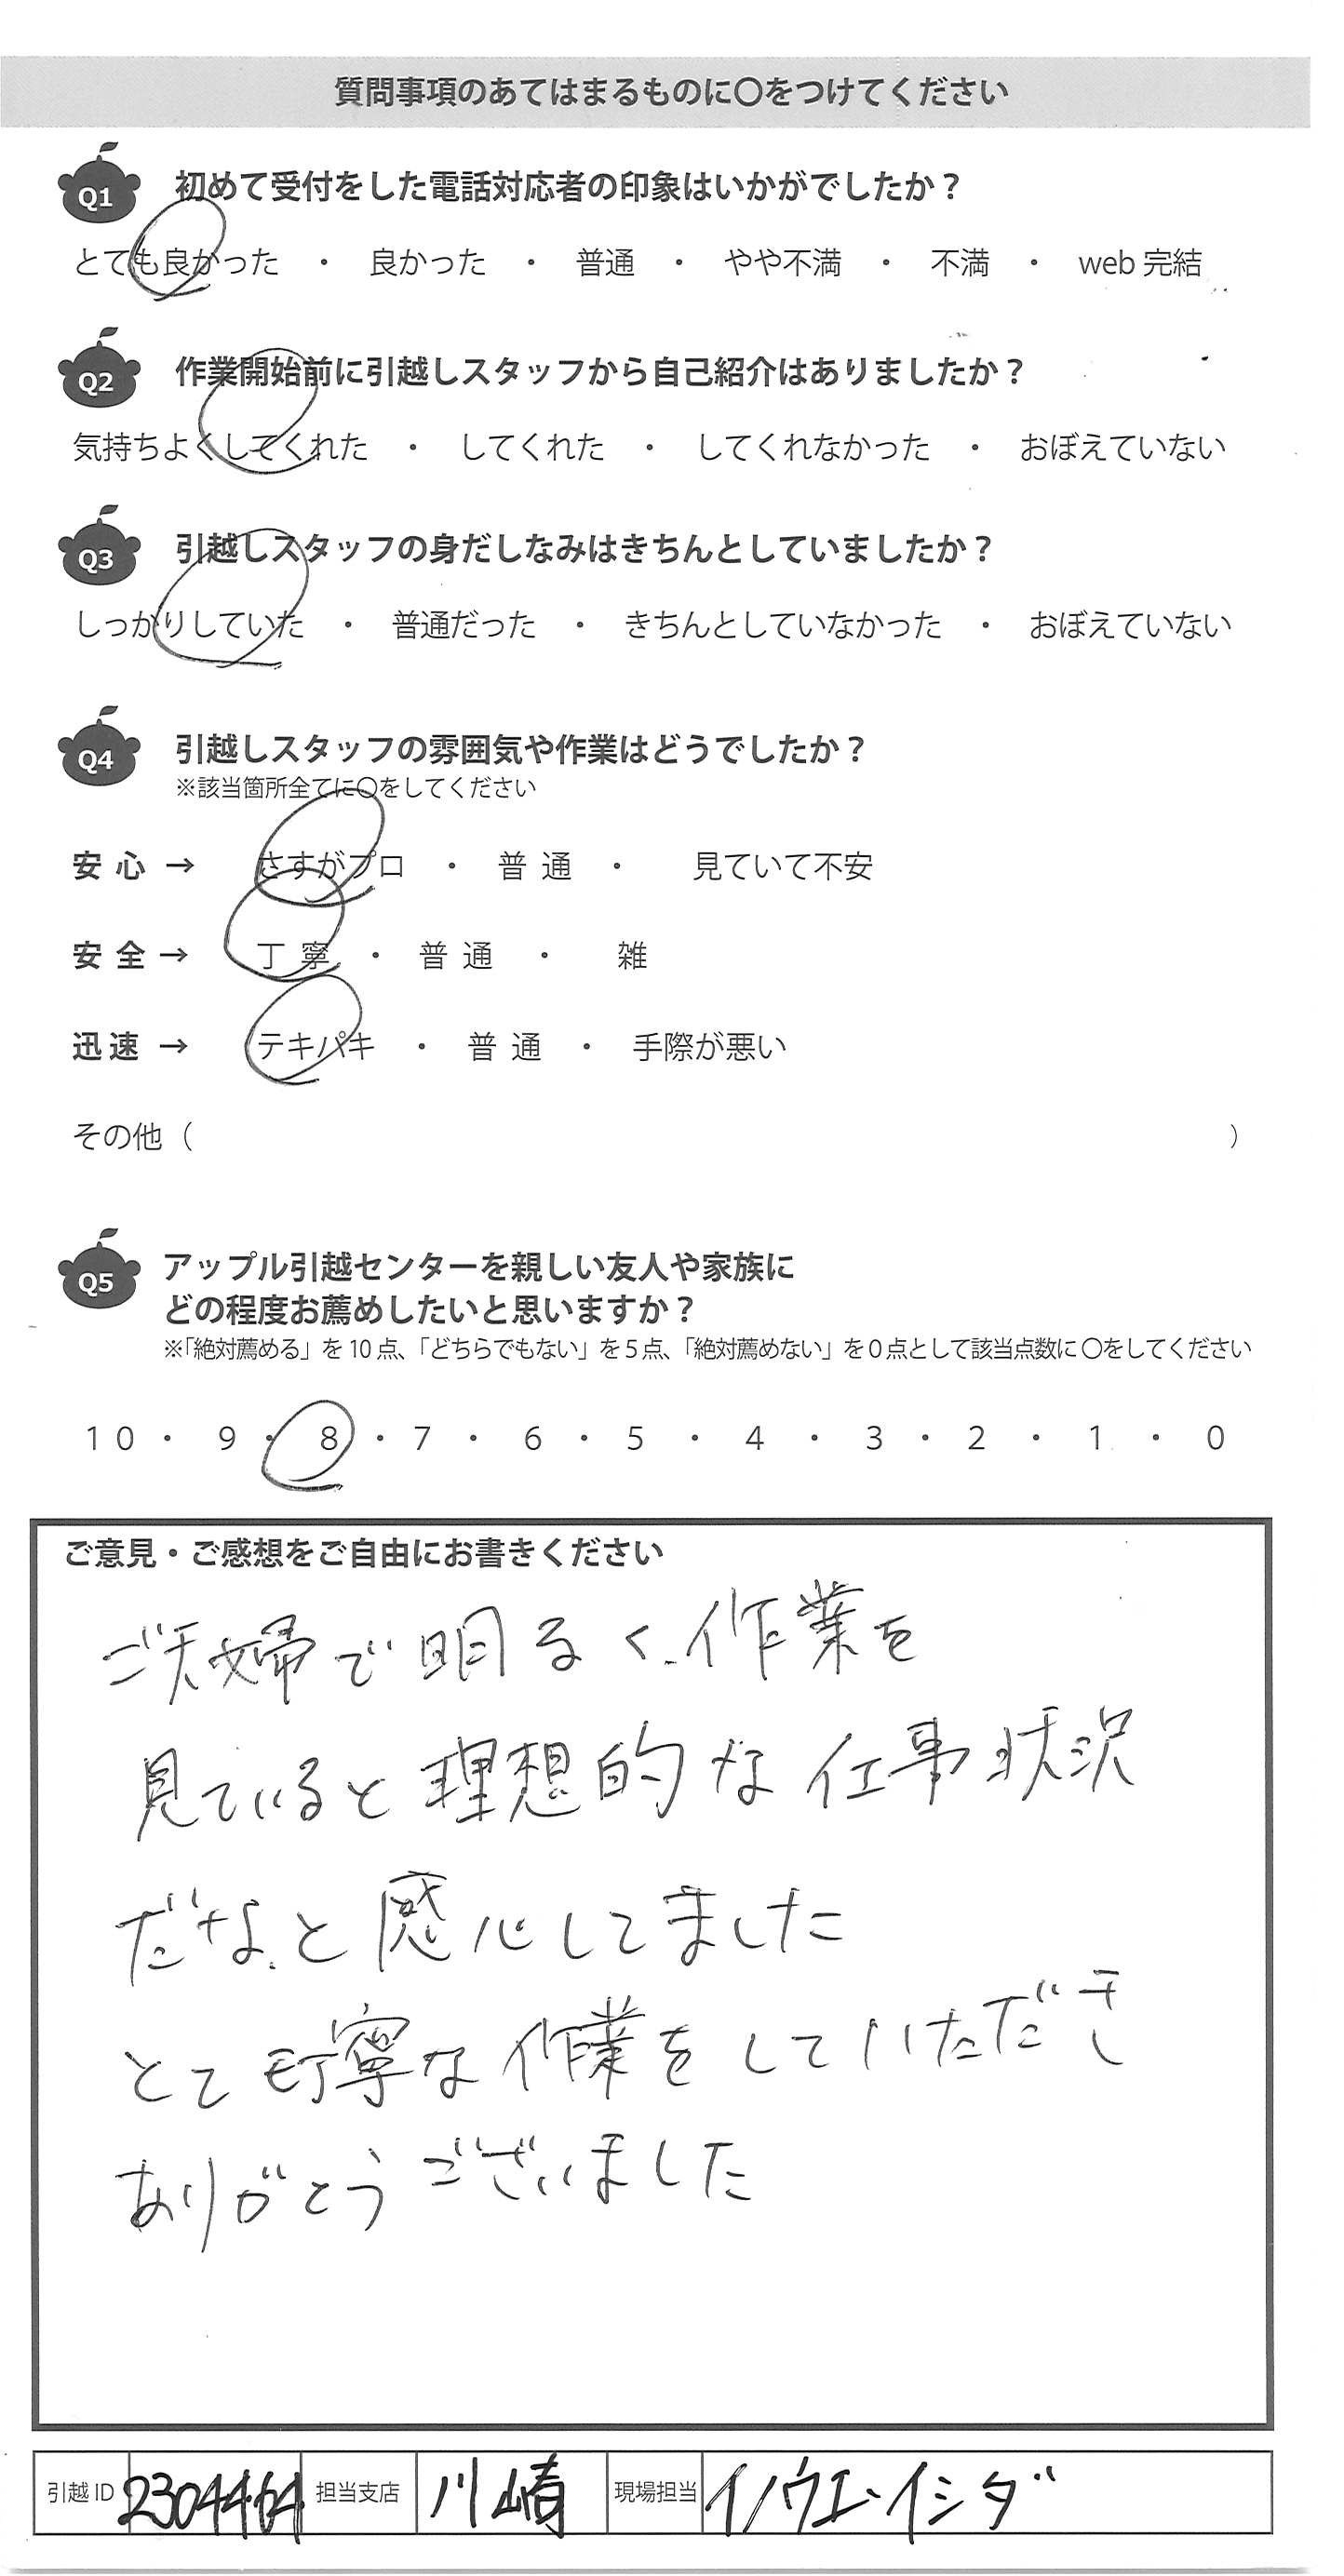 質問事項のあてはまるものに〇をつけてください
Q1 初めて受付をした電話対応者の印象はいかがでしたか？
とても良かった ・ 良かった ・ 普通 ・ やや不満 ・ 不満 ・ web 完結
Q2 作業開始前に引越しスタッフから自己紹介はありましたか？
気持ちよくしてくれた ・ してくれた ・ してくれなかった ・ おぼえていない
Q3 引越しスタッフの身だしなみはきちんとしていましたか？
しっかりしていた ・ 普通だった ・ きちんとしていなかった ・ おぼえていない
Q4 引越しスタッフの雰囲気や作業はどうでしたか？
※該当箇所全てに〇をしてください
安心 → さすがプロ ・ 普通 ・ 見ていて不安
安全 → 丁寧 ・ 普通 ・ 雑
迅速 → テキパキ ・ 普通 ・ 手際が悪い
その他（ ）
Q5 アップル引越センターを親しい友人や家族に
どの程度お薦めしたいと思いますか？
※「絶対薦める」を 10 点、「どちらでもない」を 5 点、「絶対薦めない」を 0 点として該当点数に 〇をしてください
10 ・ 9 ・ 8 ・ 7 ・ 6 ・ 5 ・ 4 ・ 3 ・ 2 ・ 1 ・ 0
ご意見・ご感想をご自由にお書きください
ご夫婦で明るく、作業を
見ていると理想的な仕事状況
だな、と感心してました
とても丁寧な作業をしていただき
ありがとうございました
引越 ID 2304464 担当支店 川崎 現場担当 イノウエ・イシダ